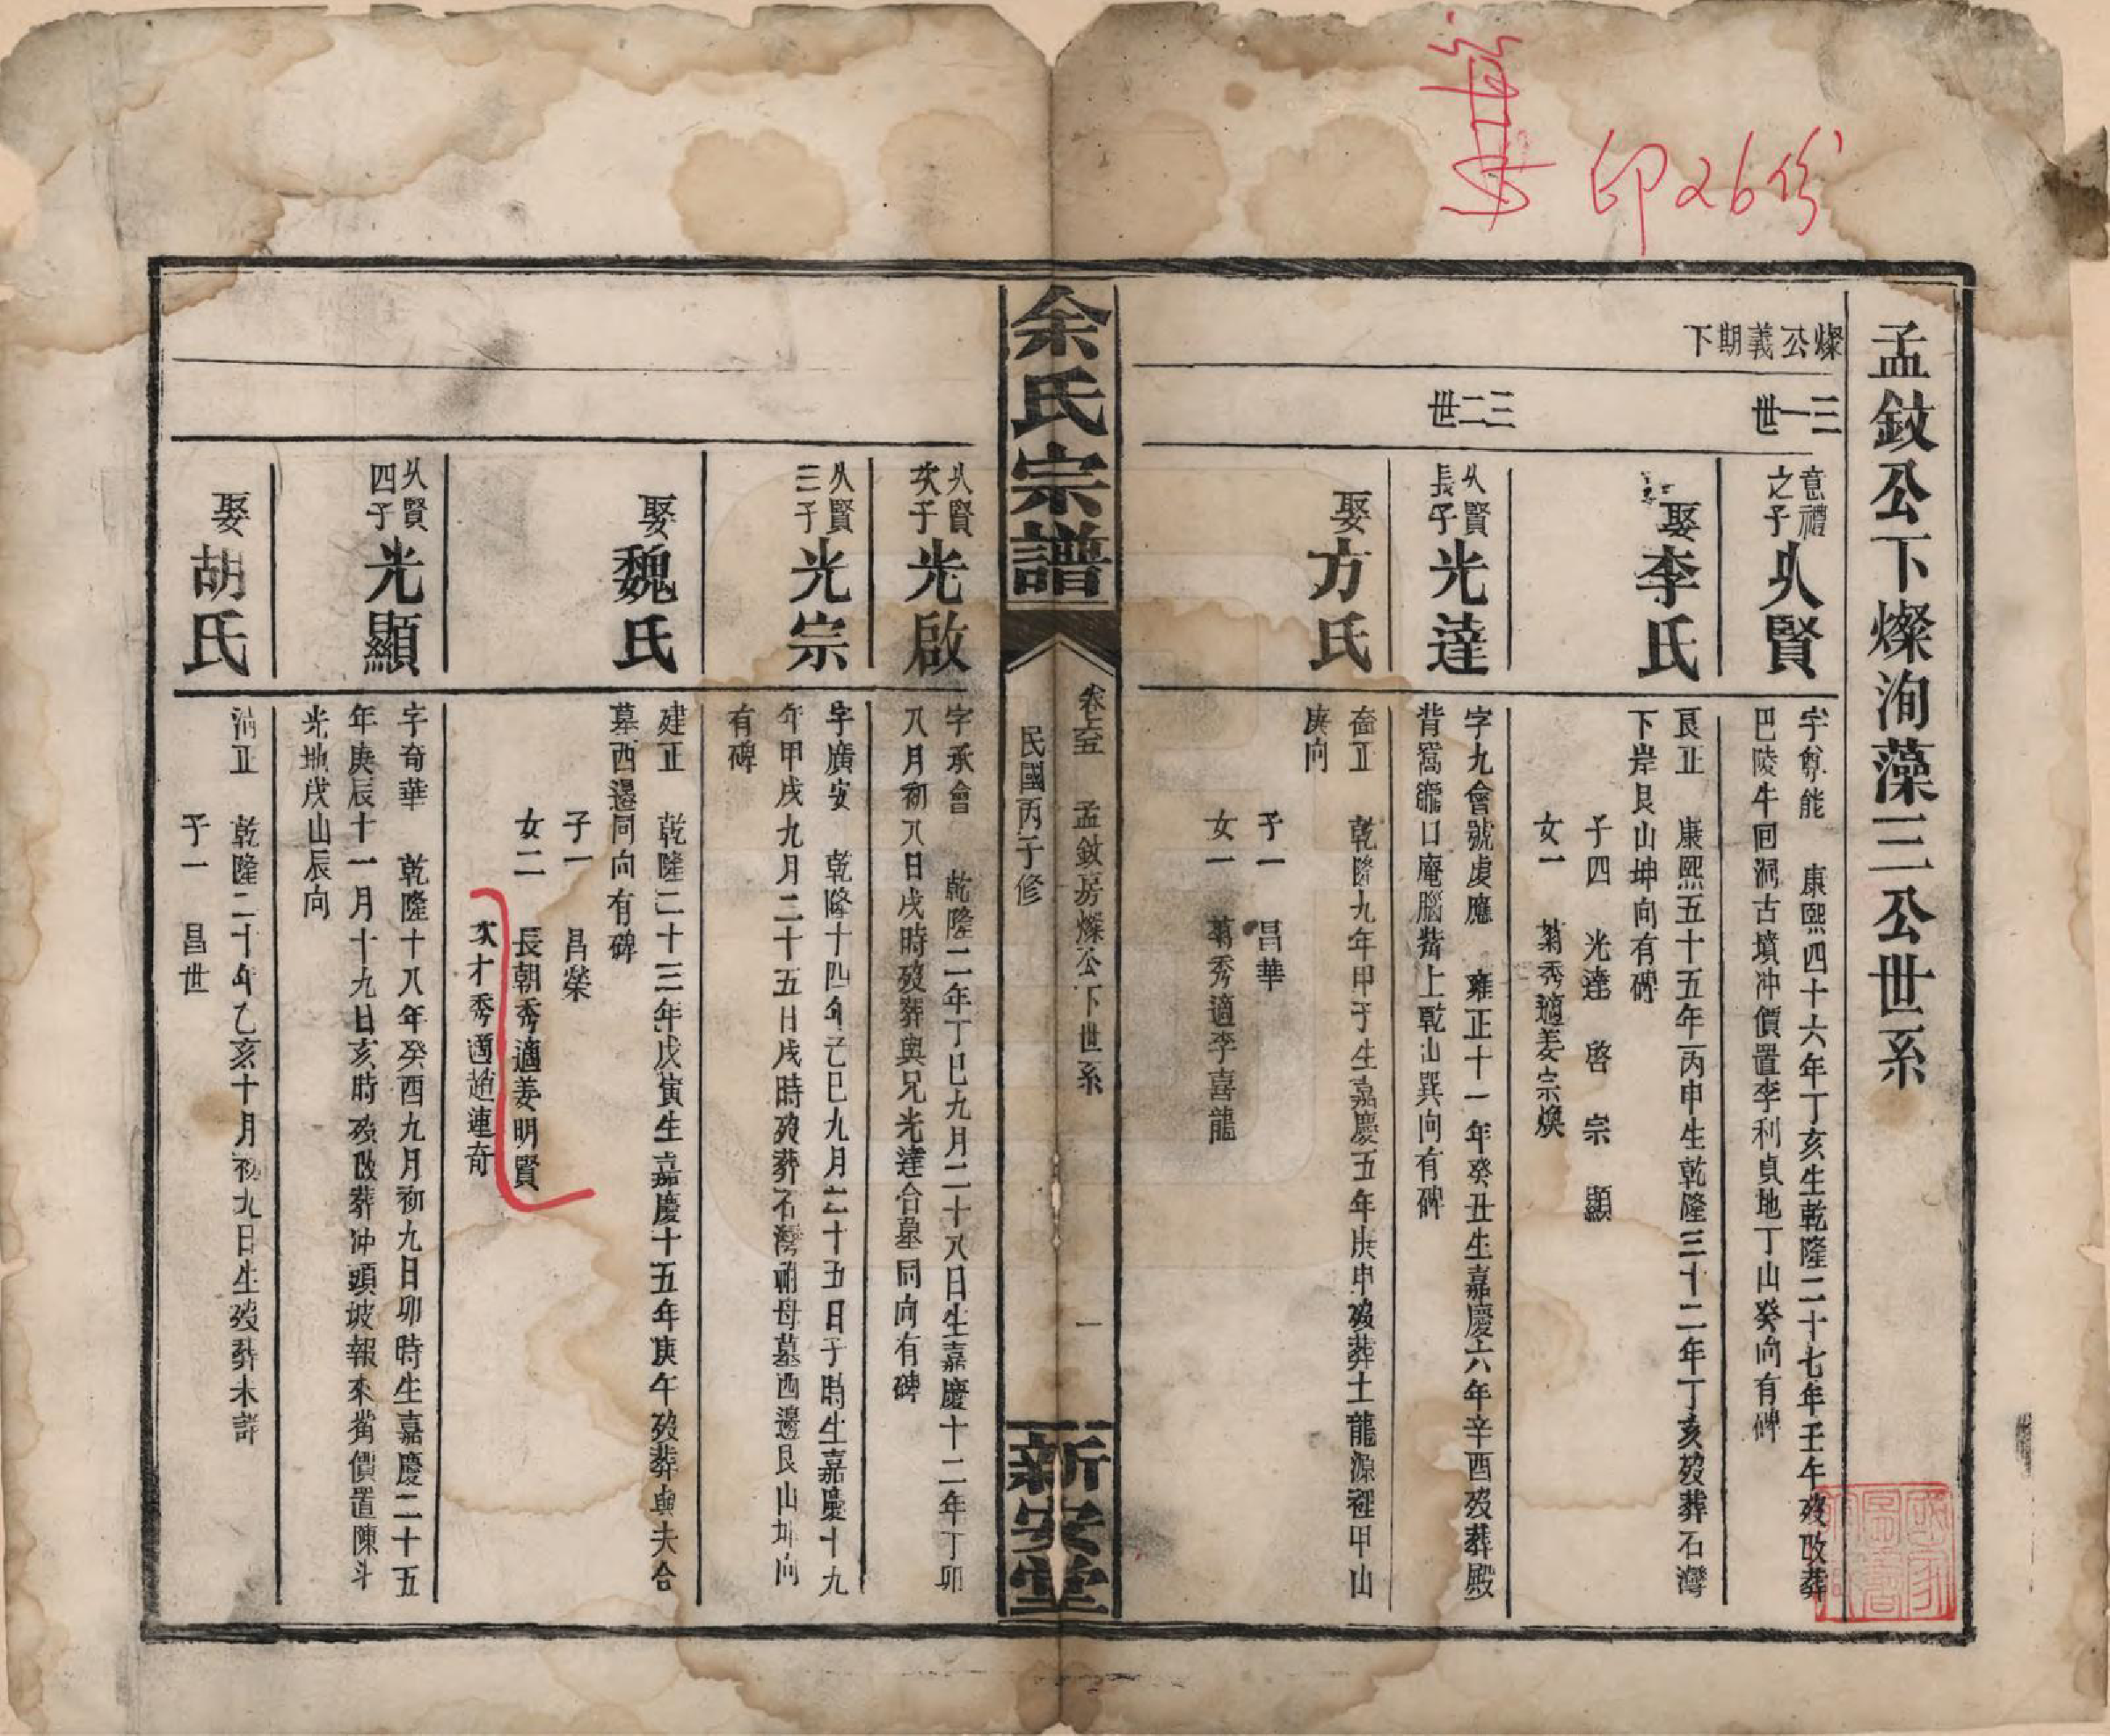 印26份
孟鈫公下燦洵藻三公世系
燦公義期下
三一世
意禮之子
久賢
字尊能 康熙四十六年丁亥生乾隆二十七年壬午歿改葬
巴陵牛回洞古墳冲價置李利貞地丁山癸向有碑
娶李氏
艮正 康熙五十五年丙申生乾隆三十二年丁亥歿葬石灣
下岸艮山坤向有碑
子四 光達 啓 宗 顯
女一 菊秀適姜宗煥
三二世
久賢長子
光達
字九會號虔應 雍正十一年癸丑生嘉慶六年辛酉歿葬殿
背窩龍口庵腦嘴上乾山巽向有碑
娶方氏
奩正 乾隆九年甲子生嘉慶五年庚申歿葬土龍源裡甲山
庚向
子一 昌華
女一 菊秀適李喜龍
余氏宗譜
卷之五 孟鈫房燦公下世系 一
民國丙子修
新安堂
久賢次子
光啟
字承會 乾隆二年丁巳九月二十八日生嘉慶十二年丁卯
八月初八日戌時歿葬與兄光達合墓同向有碑
久賢三子
光宗
字廣安 乾隆十四年己巳九月二十五日子時生嘉慶十九
年甲戌九月二十五日戌時歿葬石灣祔母墓西邊艮山坤向
有碑
娶魏氏
建正 乾隆二十三年戊寅生嘉慶十五年庚午歿葬與夫合
墓西邊同向有碑
子一 昌榮
女二 長朝秀適姜明賢
次才秀適趙連奇
久賢四子
光顯
字奇華 乾隆十八年癸酉九月初九日卯時生嘉慶二十五
年庚辰十一月十九日亥時歿改葬冲頭坡報來嘴價置陳斗
光地戌山辰向
娶胡氏
清正 乾隆二十年乙亥十月初九日生歿葬未詳
子一 昌世